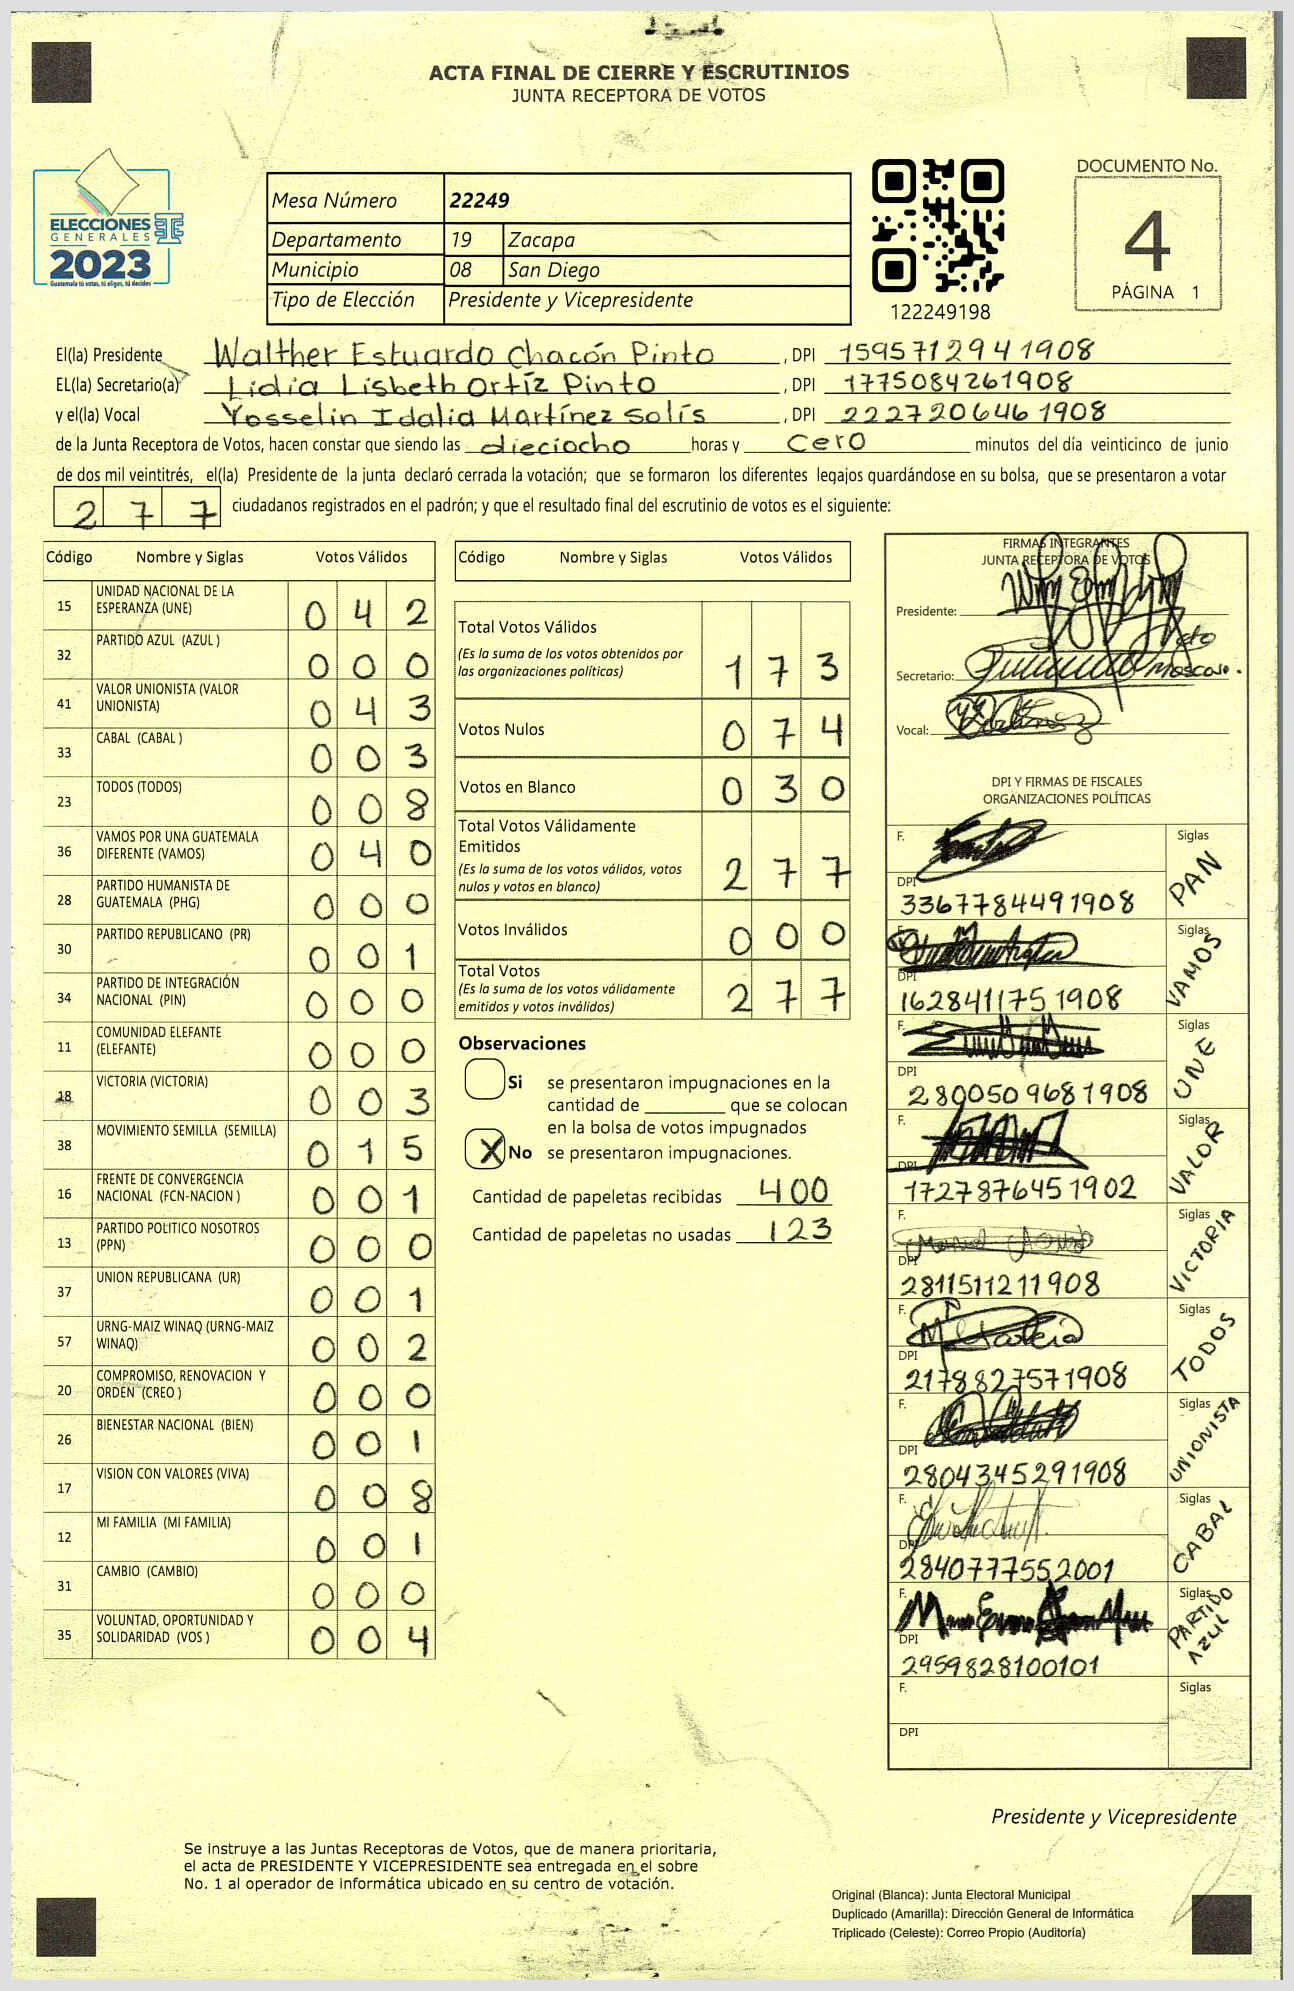 ACTA FINAL DE CIERRE Y ESCRUTINIOS
JUNTA RECEPTORA DE VOTOS
ELECCIONES
GENERALES
2023
Guatemala tú votas, tú eliges, tú decides
Mesa Número 22249
Departamento 19 Zacapa
Municipio 08 San Diego
Tipo de Elección Presidente y Vicepresidente
122249198
DOCUMENTO No.
4
PÁGINA 1
El(la) Presidente Walther Estuardo Chacón Pinto , DPI 1595712941908
EL(la) Secretario(a) Lidia Lisbeth Ortíz Pinto , DPI 1775084261908
y el(la) Vocal Yosselin Idalia Martínez Solís , DPI 2227206461908
de la Junta Receptora de Votos, hacen constar que siendo las dieciocho horas y cero minutos del día veinticinco de junio
de dos mil veintitrés, el(la) Presidente de la junta declaró cerrada la votación; que se formaron los diferentes legajos guardándose en su bolsa, que se presentaron a votar
277 ciudadanos registrados en el padrón; y que el resultado final del escrutinio de votos es el siguiente:
Código Nombre y Siglas Votos Válidos
15 UNIDAD NACIONAL DE LA ESPERANZA (UNE) 042
32 PARTIDO AZUL (AZUL ) 000
41 VALOR UNIONISTA (VALOR UNIONISTA) 043
33 CABAL (CABAL ) 003
23 TODOS (TODOS) 008
36 VAMOS POR UNA GUATEMALA DIFERENTE (VAMOS) 040
28 PARTIDO HUMANISTA DE GUATEMALA (PHG) 000
30 PARTIDO REPUBLICANO (PR) 001
34 PARTIDO DE INTEGRACIÓN NACIONAL (PIN) 000
11 COMUNIDAD ELEFANTE (ELEFANTE) 000
18 VICTORIA (VICTORIA) 003
38 MOVIMIENTO SEMILLA (SEMILLA) 015
16 FRENTE DE CONVERGENCIA NACIONAL (FCN-NACION ) 001
13 PARTIDO POLITICO NOSOTROS (PPN) 000
37 UNION REPUBLICANA (UR) 001
57 URNG-MAIZ WINAQ (URNG-MAIZ WINAQ) 002
20 COMPROMISO, RENOVACION Y ORDEN (CREO ) 000
26 BIENESTAR NACIONAL (BIEN) 001
17 VISION CON VALORES (VIVA) 008
12 MI FAMILIA (MI FAMILIA) 001
31 CAMBIO (CAMBIO) 000
35 VOLUNTAD, OPORTUNIDAD Y SOLIDARIDAD (VOS ) 004
Código Nombre y Siglas Votos Válidos
Total Votos Válidos
(Es la suma de los votos obtenidos por las organizaciones políticas) 173
Votos Nulos 074
Votos en Blanco 030
Total Votos Válidamente Emitidos
(Es la suma de los votos válidos, votos nulos y votos en blanco) 277
Votos Inválidos 000
Total Votos
(Es la suma de los votos válidamente emitidos y votos inválidos) 277
Observaciones
Si se presentaron impugnaciones en la
cantidad de ________ que se colocan
en la bolsa de votos impugnados
X No se presentaron impugnaciones.
Cantidad de papeletas recibidas 400
Cantidad de papeletas no usadas 123
FIRMAS INTEGRANTES
JUNTA RECEPTORA DE VOTOS
Presidente:
Secretario:
Vocal:
DPI Y FIRMAS DE FISCALES
ORGANIZACIONES POLÍTICAS
F. Siglas PAN
DPI 3367784491908
F. Siglas VAMOS
DPI 1628411751908
F. Siglas UNE
DPI 2800509681908
F. Siglas VALOR
DPI 1727876451902
F. Siglas VICTORIA
DPI 2811511211908
F. Siglas TODOS
DPI 2178827571908
F. Siglas UNIONISTA
DPI 2804345291908
F. Siglas CABAL
DPI 2840777552001
F. Siglas PARTIDO AZUL
DPI 2959828100101
F. Siglas
DPI
Presidente y Vicepresidente
Se instruye a las Juntas Receptoras de Votos, que de manera prioritaria,
el acta de PRESIDENTE Y VICEPRESIDENTE sea entregada en el sobre
No. 1 al operador de informática ubicado en su centro de votación.
Original (Blanca): Junta Electoral Municipal
Duplicado (Amarilla): Dirección General de Informática
Triplicado (Celeste): Correo Propio (Auditoría)